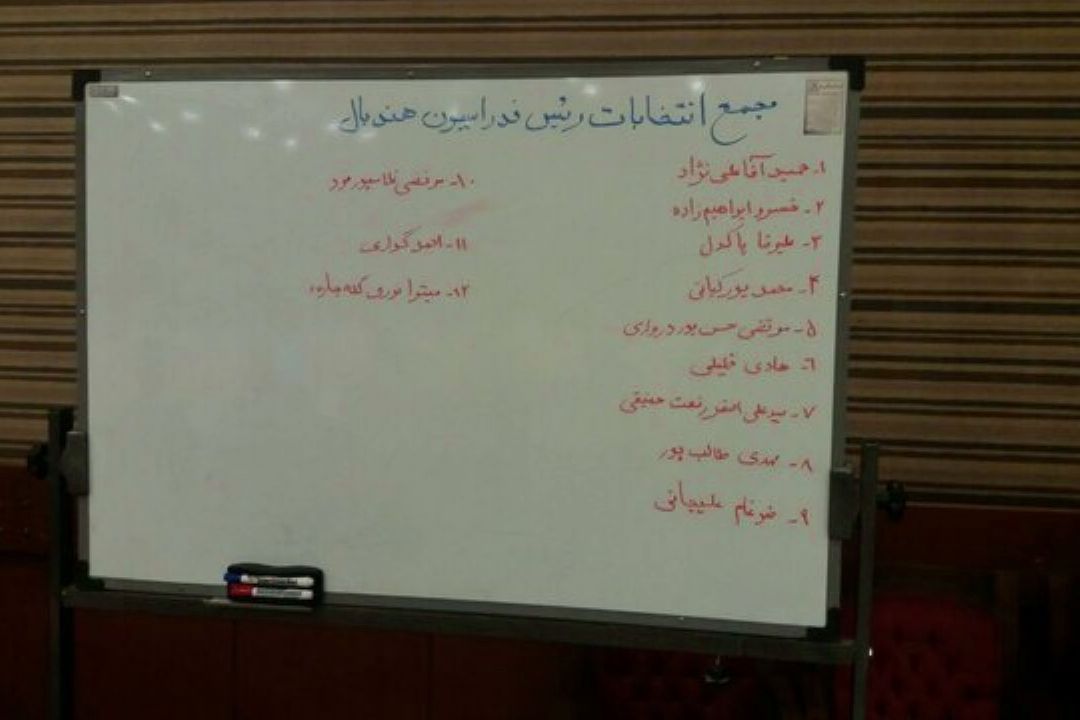 مجمع انتخابات رئیس فدراسیون هندبال
۱- حمید آقاعلی نژاد
۲- خسرو ابراهیم زاده
۳- علیرضا پاکدل
۴- محمد پورکیانی
۵- مرتضی حسن پور درواری
۶- هادی خلیلی
۷- سید علی اصغر رفعت حقیقی
۸- مهدی طالب پور
۹- ضرغام علیجانی
۱۰- مرتضی
۱۱- احمد گواری
۱۲- میترا نوروزی